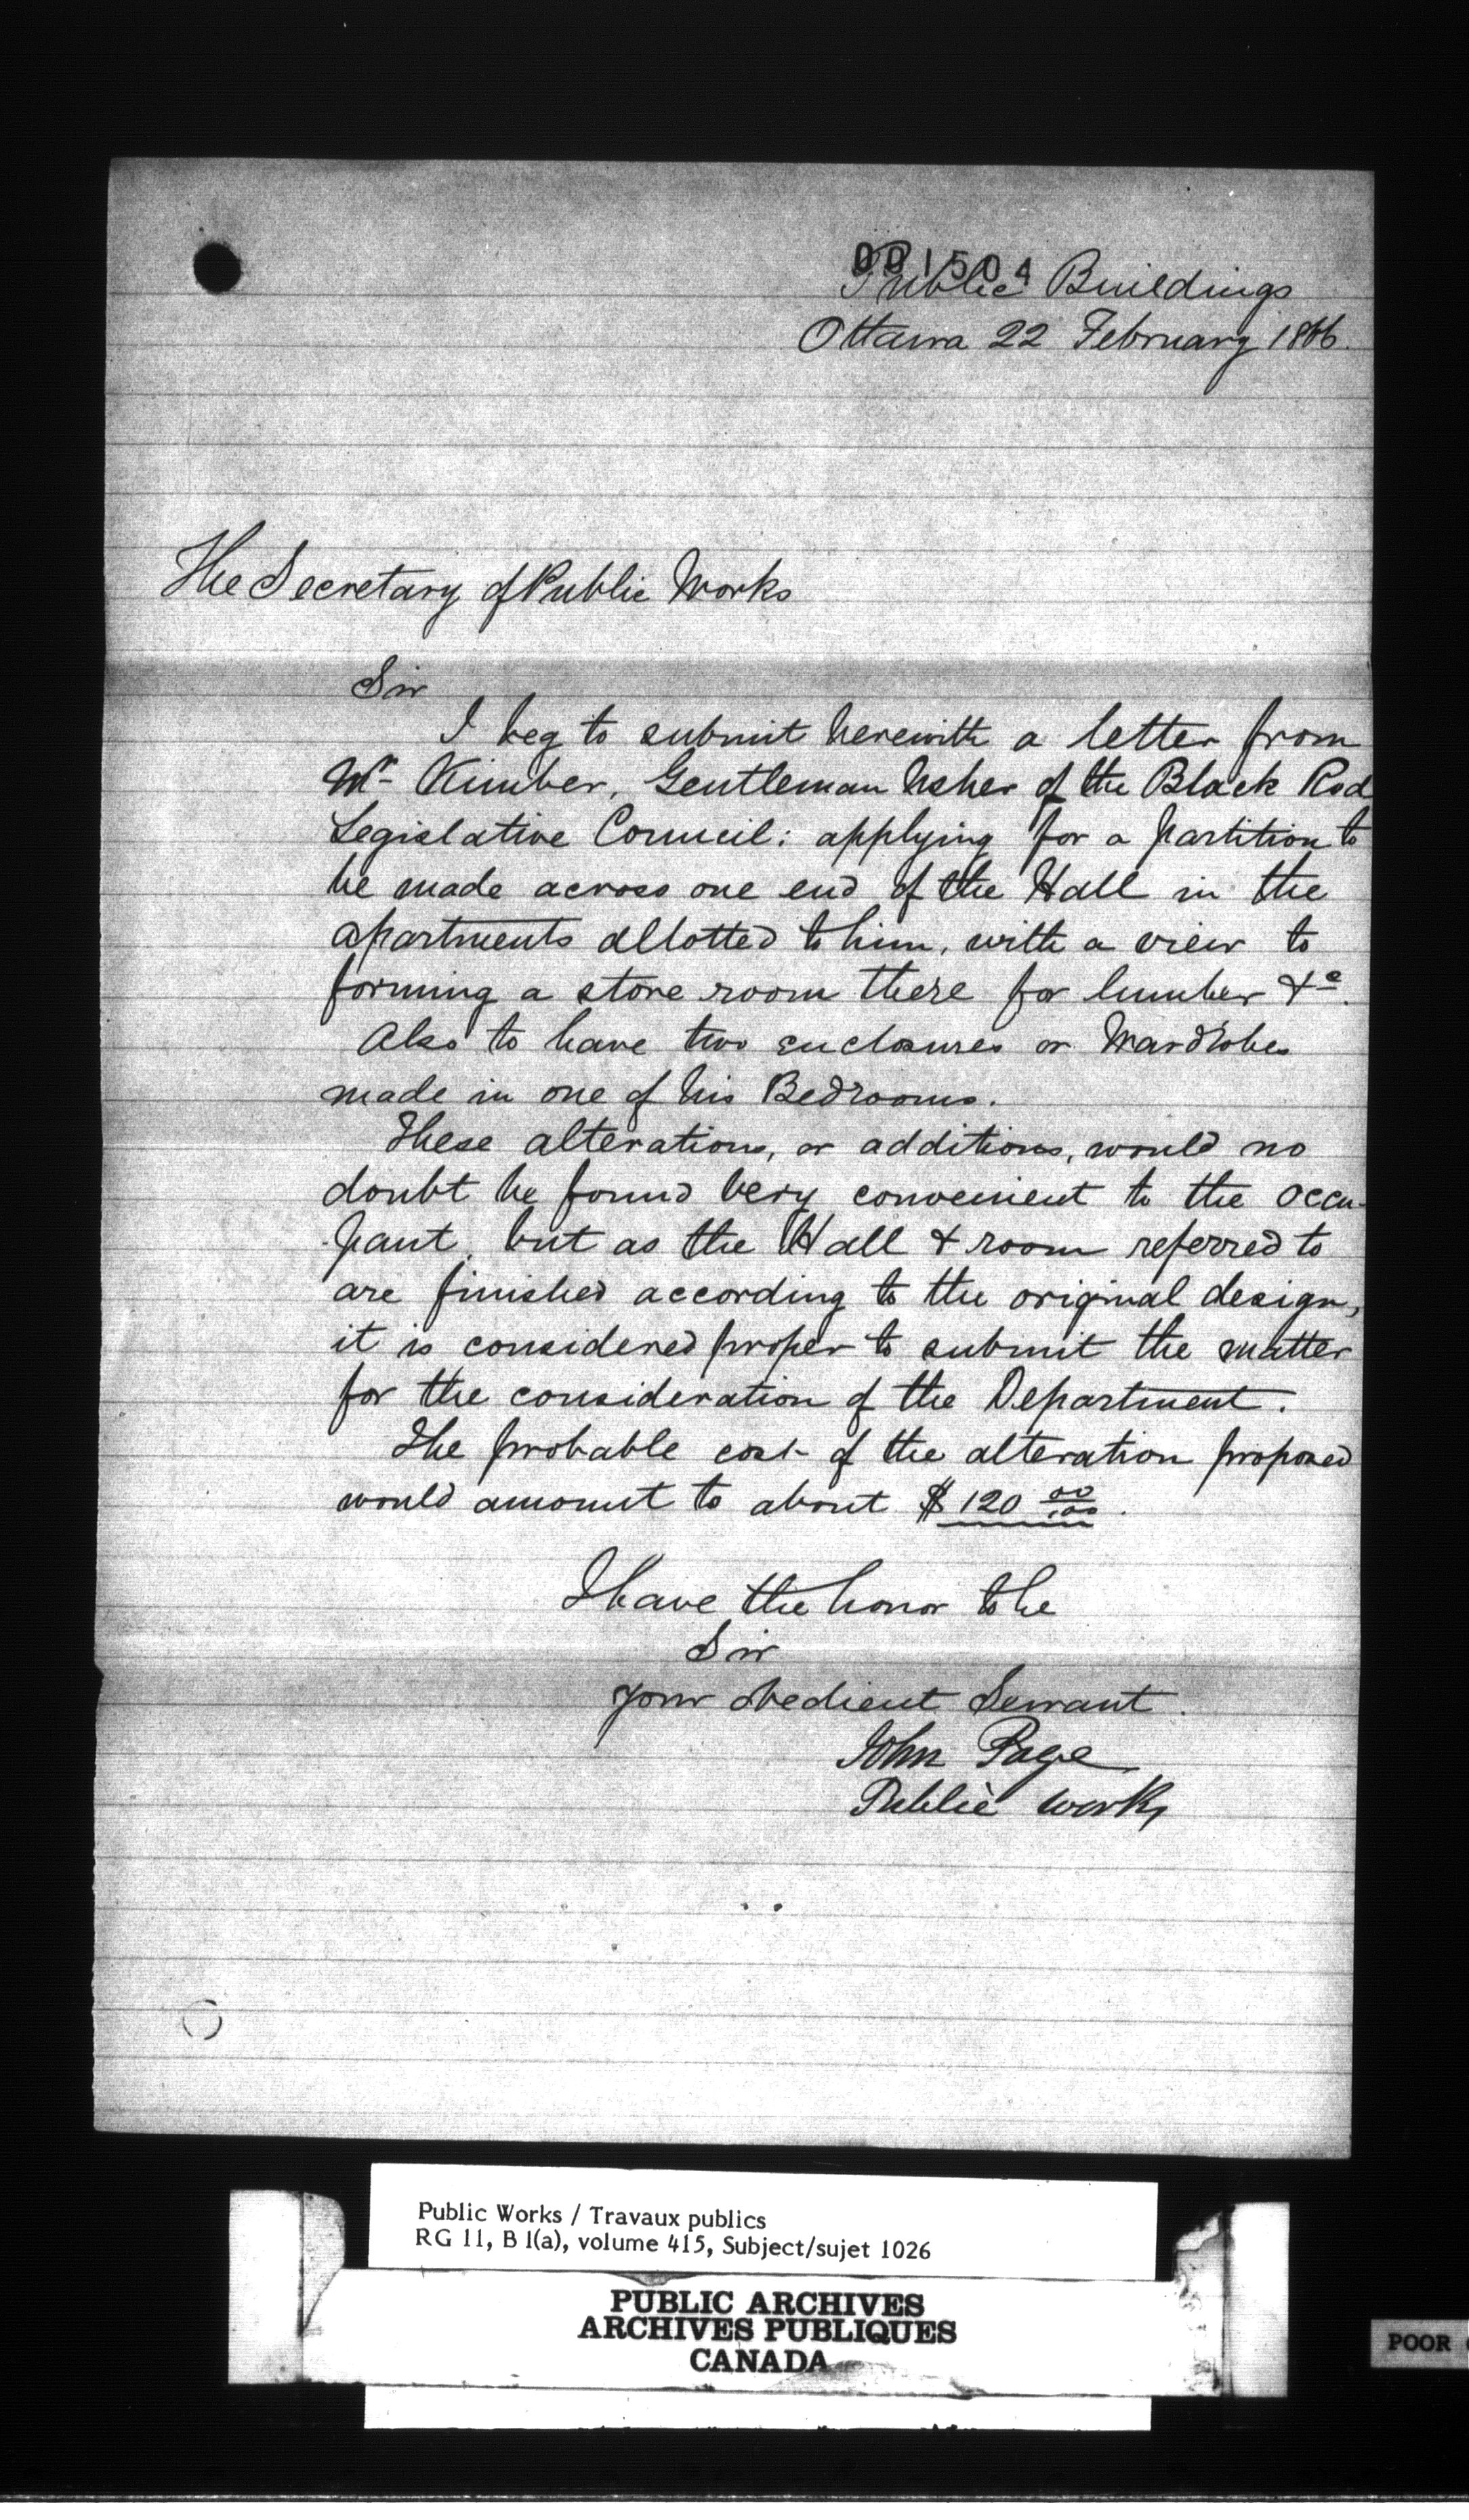 001504
Public Buildings
Ottawa 22 February 1866.
The Secretary of Public Works
Sir
I beg to submit herewith a letter from
Mr Kimber, Gentleman Usher of the Black Rod
Legislative Council: applying for a partition to
be made across one end of the Hall in the
apartments allotted to him, with a view to
forming a store room there for lumber &c.
Also to have two enclosures or Wardrobes
made in one of his Bedrooms.
These alterations, or additions, would no
doubt be found very convenient to the occu-
pant, but as the Hall & room referred to
are finished according to the original design,
it is considered proper to submit the matter
for the consideration of the Department.
The probable cost of the alteration proposed
would amount to about $120 00/100.
I have the honor to be
Sir
your obedient Servant.
John Page
Public Works
Public Works / Travaux publics
RG 11, B 1(a), volume 415, Subject/sujet 1026
PUBLIC ARCHIVES
ARCHIVES PUBLIQUES
CANADA
POOR